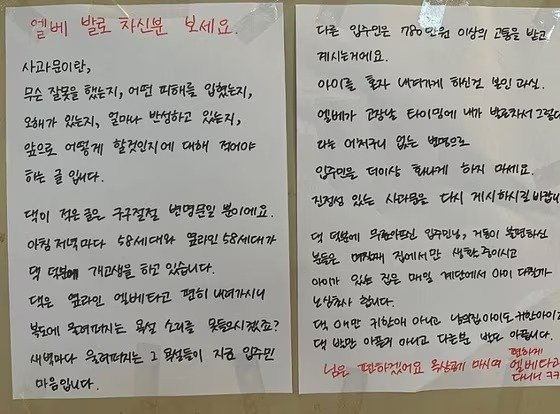 엘베 발로 차신분 보세요.
사과문이란,
무슨 잘못을 했는지, 어떤 피해를 입혔는지,
오해가 있는지, 얼마나 반성하고 있는지,
앞으로 어떻게 할것인지에 대해 적어야
하는 글 입니다.
댁이 적은 글은 구구절절 변명문일 뿐이에요.
아침저녁마다 58세대와 옆라인 58세대가
댁 덕분에 개고생을 하고 있습니다.
댁은 옆라인 엘베타고 편히 내려가시니
복도에 울려퍼지는 욕설 소리를 못들으시겠죠?
새벽마다 울려퍼지는 그 욕설들이 지금 입주민
마음입니다.
다른 입주민은 780만원 이상의 고통을 받고
계시는거에요.
아이를 혼자 내려가게 하신건 본인 과실.
엘베가 고장날 타이밍에 내가 발로차서 그렇다
라는 어처구니 없는 변명으로
입주민을 더이상 화나게 하지 마세요.
진정성 있는 사과문을 다시 게시하시길 바랍니
댁 덕분에 무릎아프신 입주민님, 거동이 불편하신
분들은 며칠째 집에서만 생활 중이시고
아이가 있는 집은 매일 계단에서 아이 다칠까
노심초사 합니다.
댁 애만 귀한애 아니고 남의집 아이도 귀한아이고
댁 발만 아픈게 아니고 다른분 발도 아픕니다.
님은 편하겠어요 마시며 편하게
엘베타고
다니니 ㅋㅋ